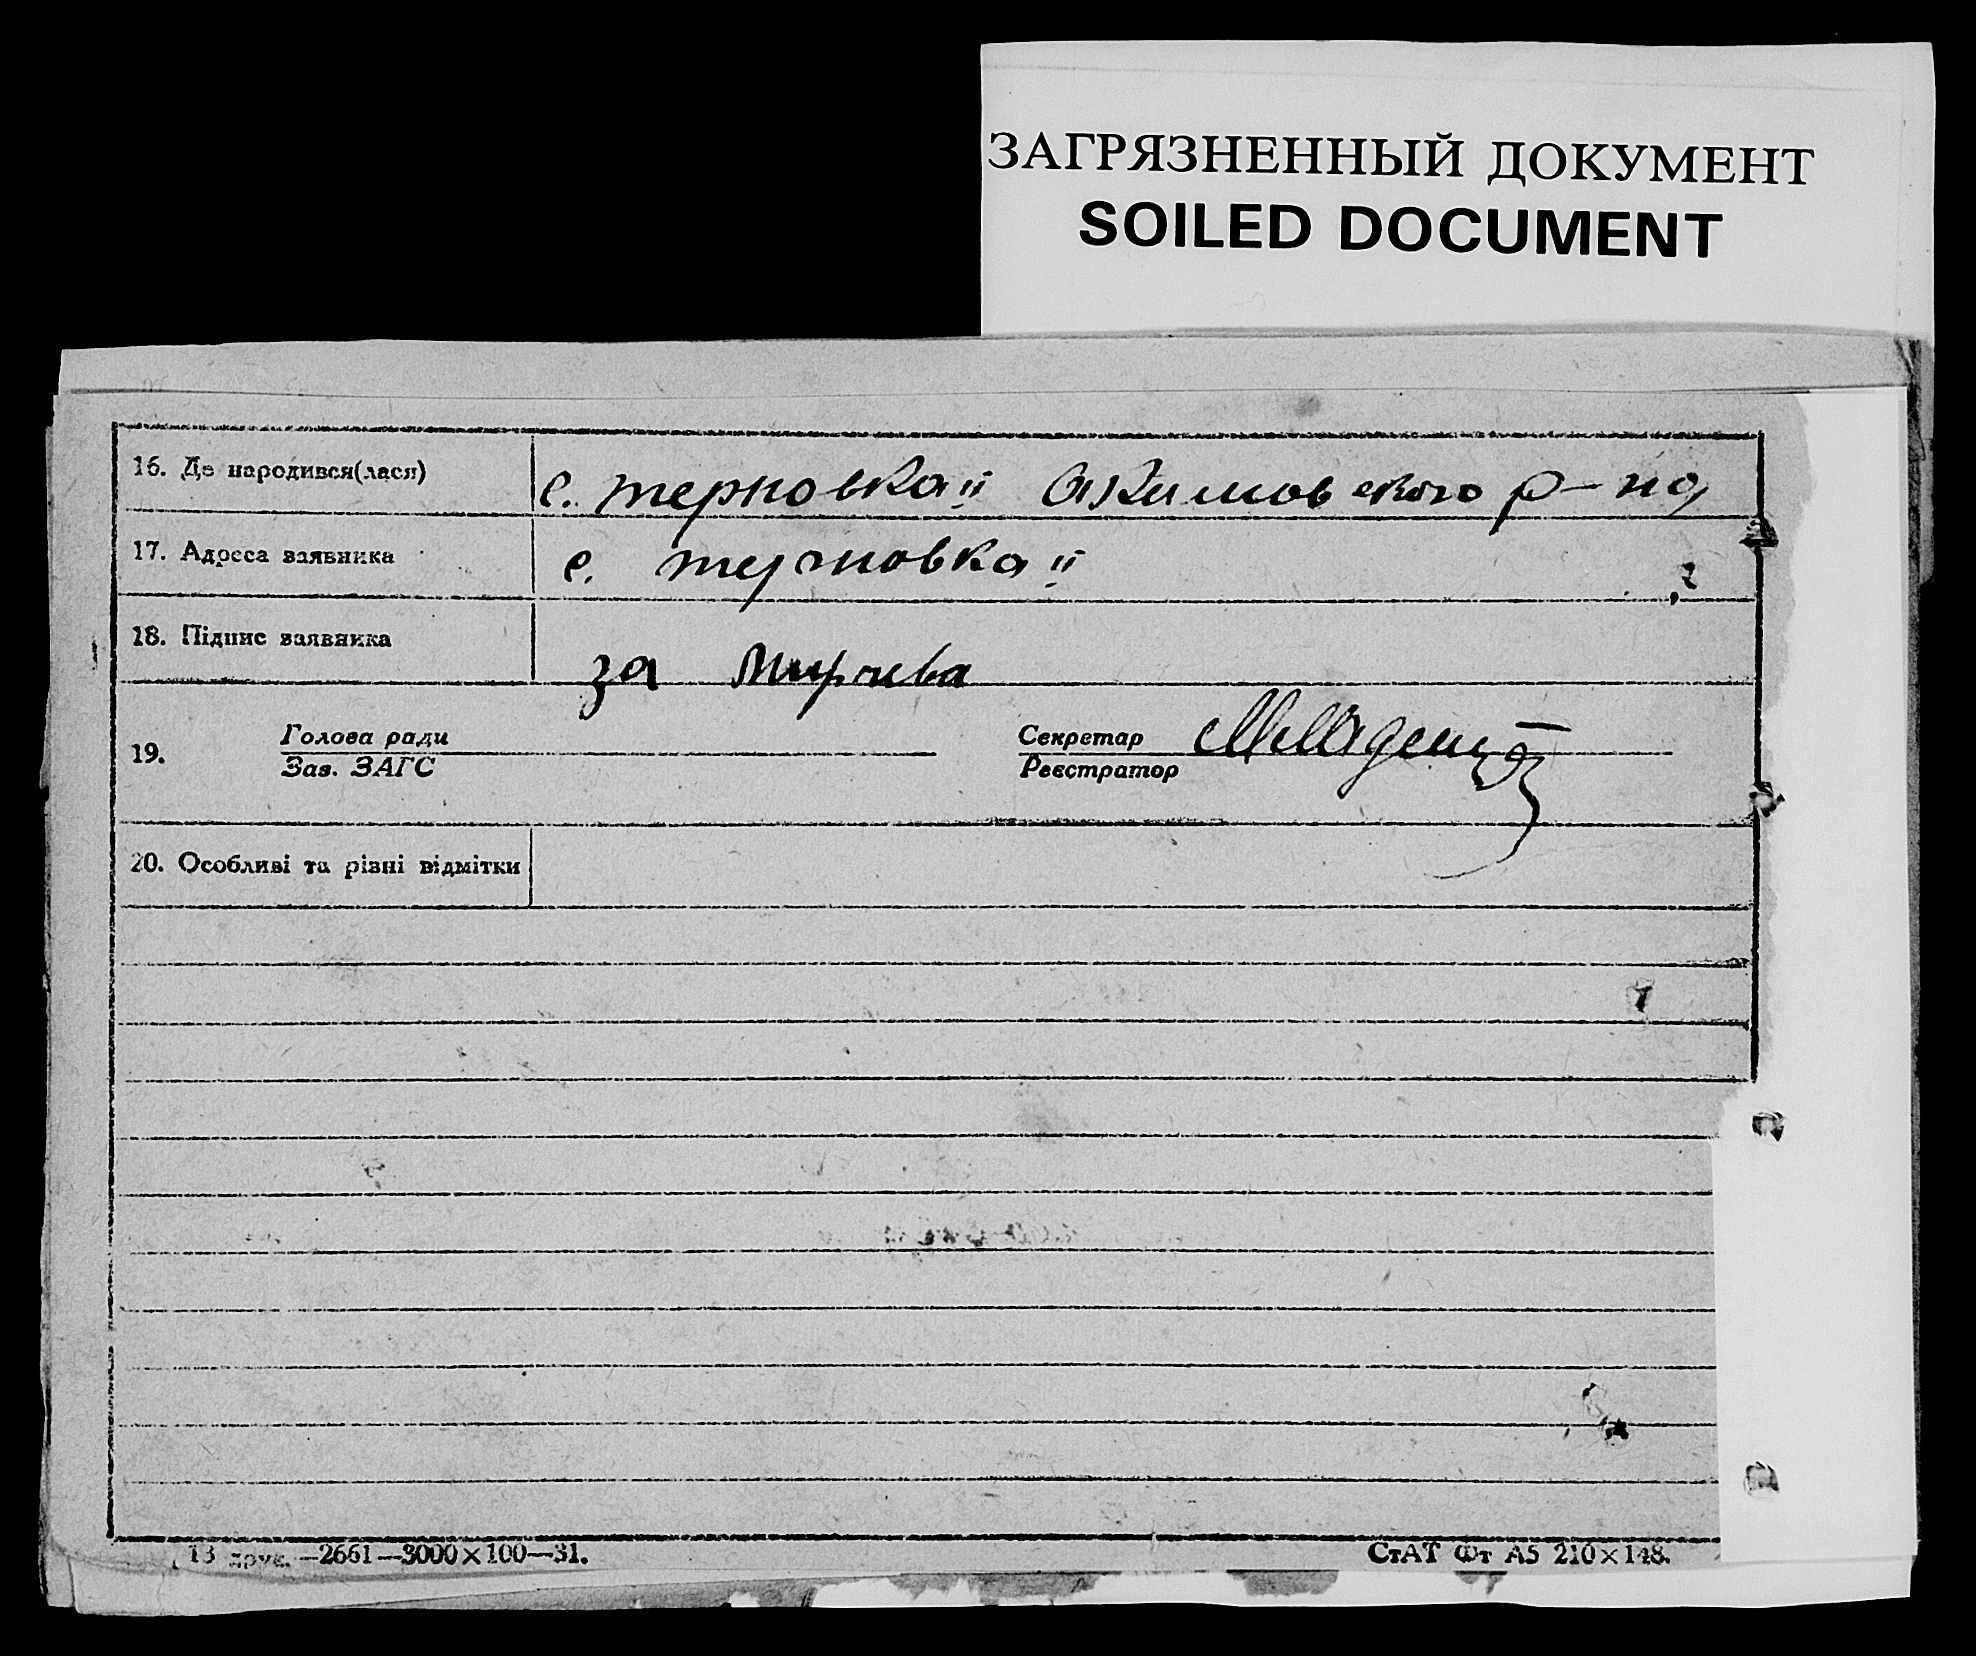 ЗАГРЯЗНЕННЫЙ ДОКУМЕНТ
SOILED DOCUMENT
16. Де народився(лася) с. терновка іі Акимовского р-на
17. Адреса заявника с. терновка іі
18. Підпис заявника за
19. Голова ради Секретар
Зав. ЗАГС Реєстратор
20. Особливі та різні відмітки
13 друк. —2661—3000×100—31. СтАТ Фт А5 210×148.